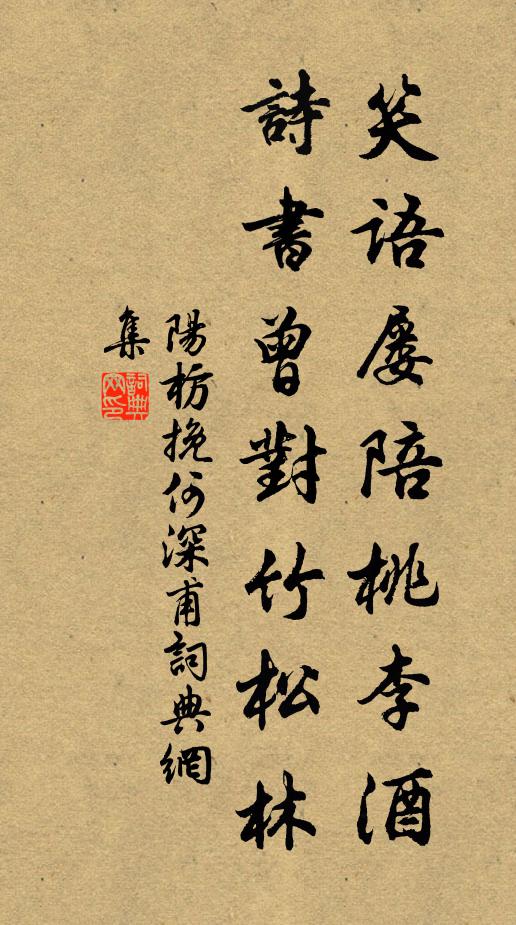 笑語屡陪桃李酒
詩書曾對竹松林
陽枋挽何深甫詞典網
集
詞典網印